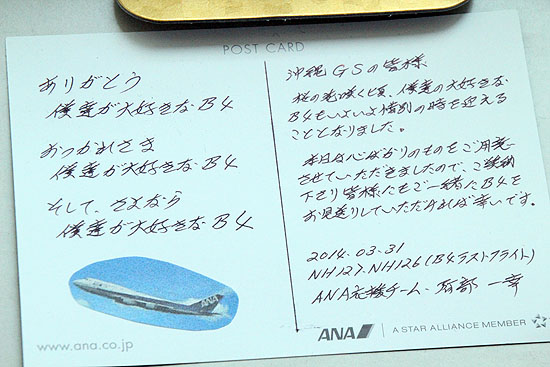 POST CARD
ありがとう
僕達が大好きなB4
おつかれさま
僕達が大好きなB4
そして、さよなら
僕達が大好きなB4
www.ana.co.jp
沖縄GSの皆様
桜の花咲く頃、僕達の大好きな
B4もいよいよ惜別の時を迎える
こととなりました。
本日は心ばかりのものをご用意
させていただきましたので、ご笑納
下さり皆様にもご一緒にB4を
お見送りしていただければ幸いです。
2014.03.31
NH127.NH126(B4ラストフライト)
ANA応援チーム・阿部 一幸
ANA
A STAR ALLIANCE MEMBER